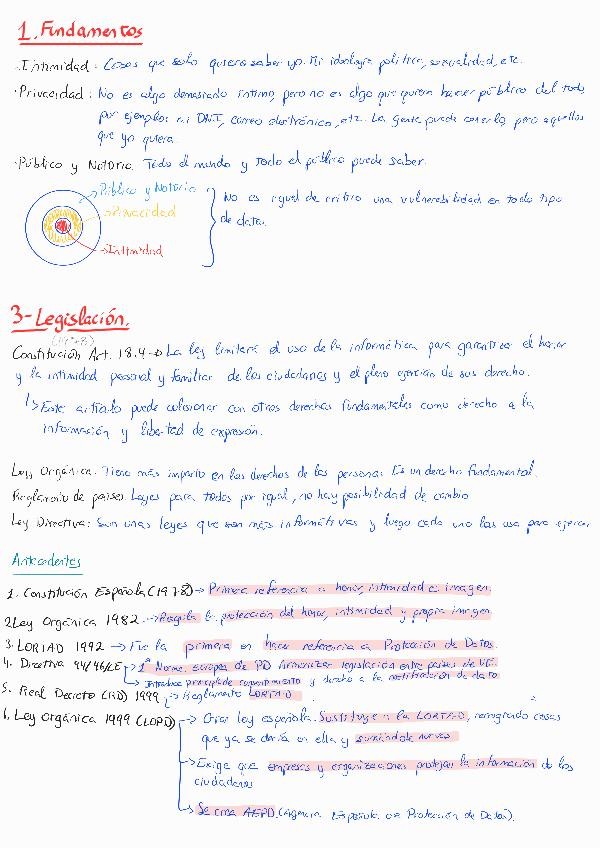 1. Fundamentos
· Intimidad: Cosas que solo quiero saber yo. Mi ideología política, sexualidad, etc.
· Privacidad: No es algo demasiado íntimo, pero no es algo que quiera hacer público del todo
por ejemplo: mi DNI, correo electrónico, etc. La gente puede conocerlo, pero aquellos
que yo quiera.
· Público y Notorio. Todo el mundo y todo el público puede saber.
Público y Notorio
Privacidad
Intimidad
No es igual de crítico una vulnerabilidad en todo tipo
de datos.
3- Legislación.
(1978)
Constitución Art. 18.4 → La ley limitará el uso de la informática para garantizar el honor
y la intimidad personal y familiar de los ciudadanos y el pleno ejercicio de sus derechos.
Este artículo puede colisionar con otros derechos fundamentales como derecho a la
información y libertad de expresión.
Ley Orgánica: Tiene más impacto en los derechos de las personas. Es un derecho fundamental.
Reglamento de países: Leyes para todos por igual, no hay posibilidad de cambio
Ley Directiva: Son unas leyes que son más informativas y luego cada uno las usa para ejercer
Antecedentes
1. Constitución Española (1978) → Primera referencia a honor, intimidad e imagen.
2. Ley Orgánica 1982. → Regula la protección del honor, intimidad y propia imagen
3. LORTAD 1992 → Fue la primera en hacer referencia a Protección de Datos.
4. Directiva 94/46/CE → 1ª Norma europea de PD Armonizar legislación entre países de UE.
→ Introduce principio de consentimiento y derecho a la notificación de dato
5. Real Decreto (RD) 1999 → Reglamento LORTAD.
6. Ley Orgánica 1999 (LOPD) → Crear ley española. Sustituye a la LORTAD, cosas
que ya se decía en ella y sumándole nuevas
→ Exige que empresas y organizaciones protejan la información de los
ciudadanos
→ Se crea AEPD. (Agencia Española de Protección de Datos).